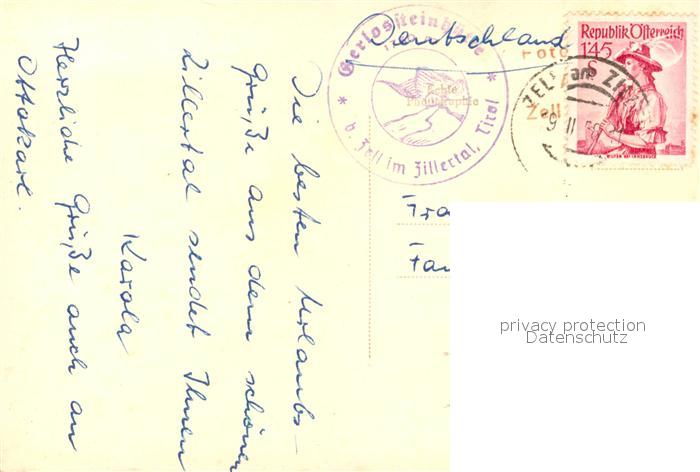 Die besten Urlaubs-
Grüße aus dem schönen
Zillertal sendet Ihnen
Karola
Herzliche Grüße auch an
Ottokarl.
Deutschland
Gerlossteinhütte
* b. Zell im Zillertal, Tirol *
Echte
Photographie
Foto
Zell
Republik Österreich
1.45
S
ZELL am ZILLER
9.II
WILTEN BEI INNSBRUCK
Fra
Fa
privacy protection
Datenschutz